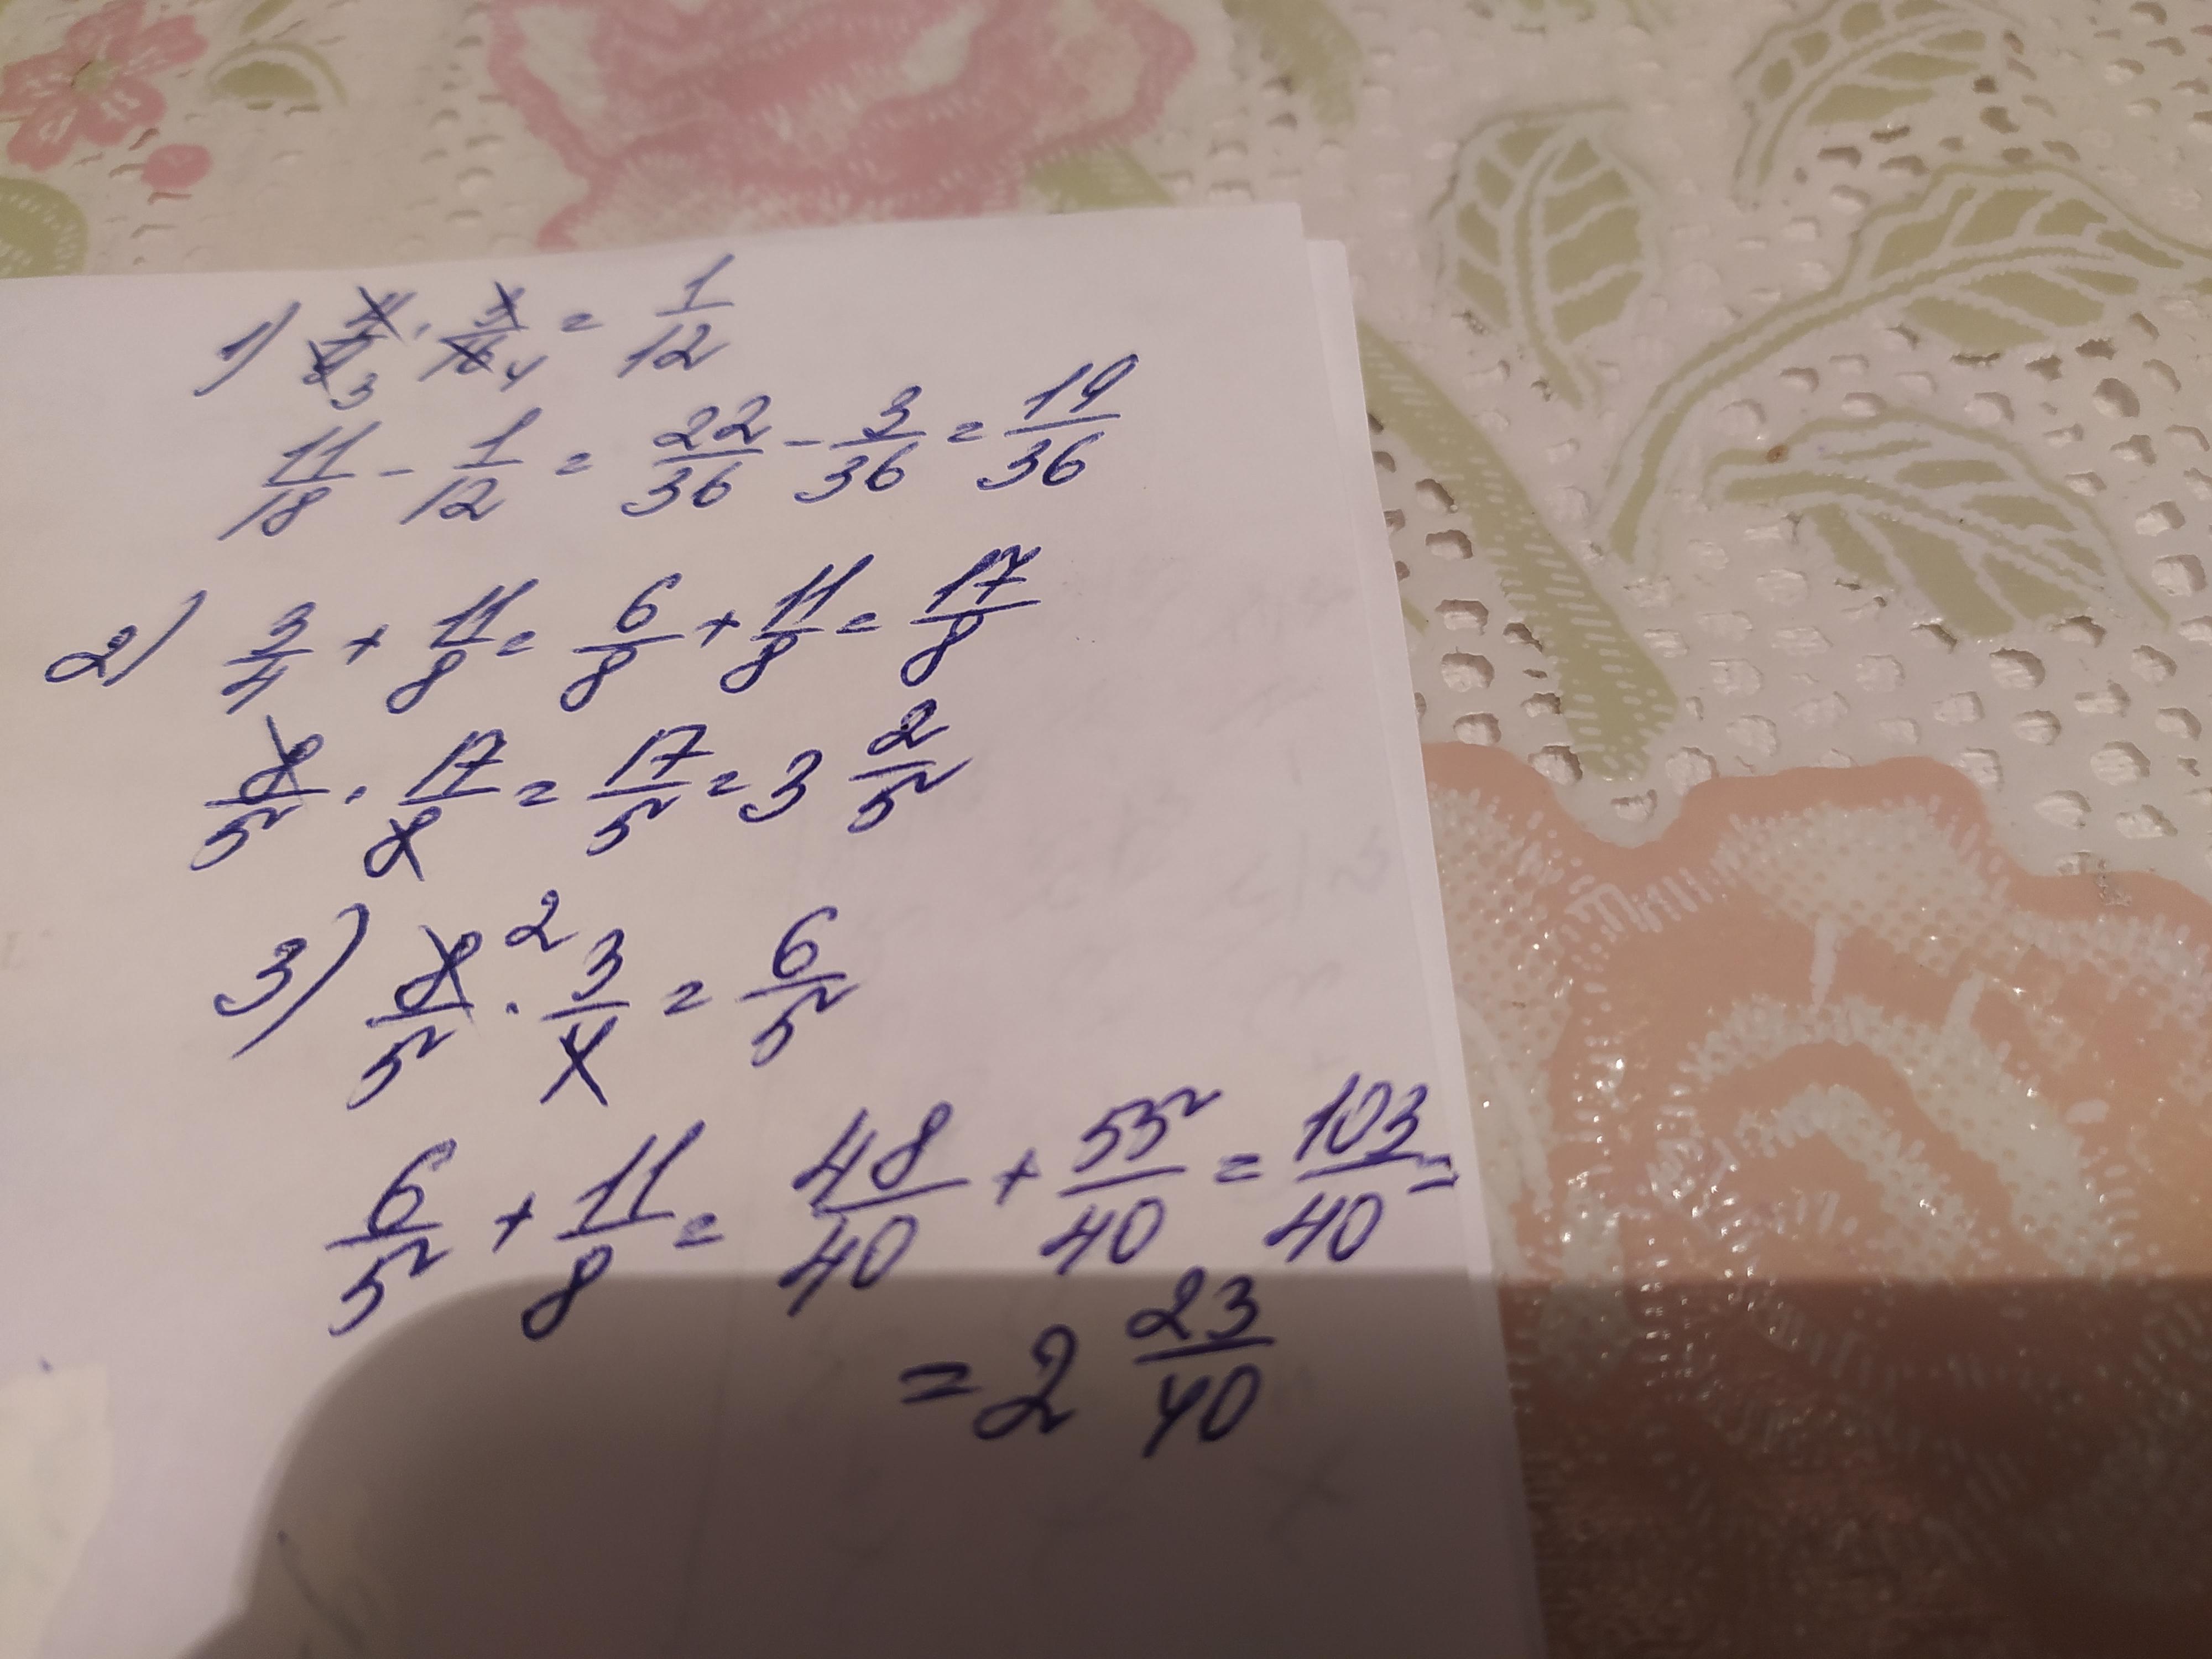 1) 4/9 3 · 3/16 4 = 1/12
11/18 - 1/12 = 22/36 - 3/36 = 19/36
2) 3/4 + 11/8 = 6/8 + 11/8 = 17/8
8/5 · 17/8 = 17/5 = 3 2/5
3) 8/5 2 · 3/4 = 6/5
6/5 + 11/8 = 48/40 + 55/40 = 103/40 =
= 2 23/40